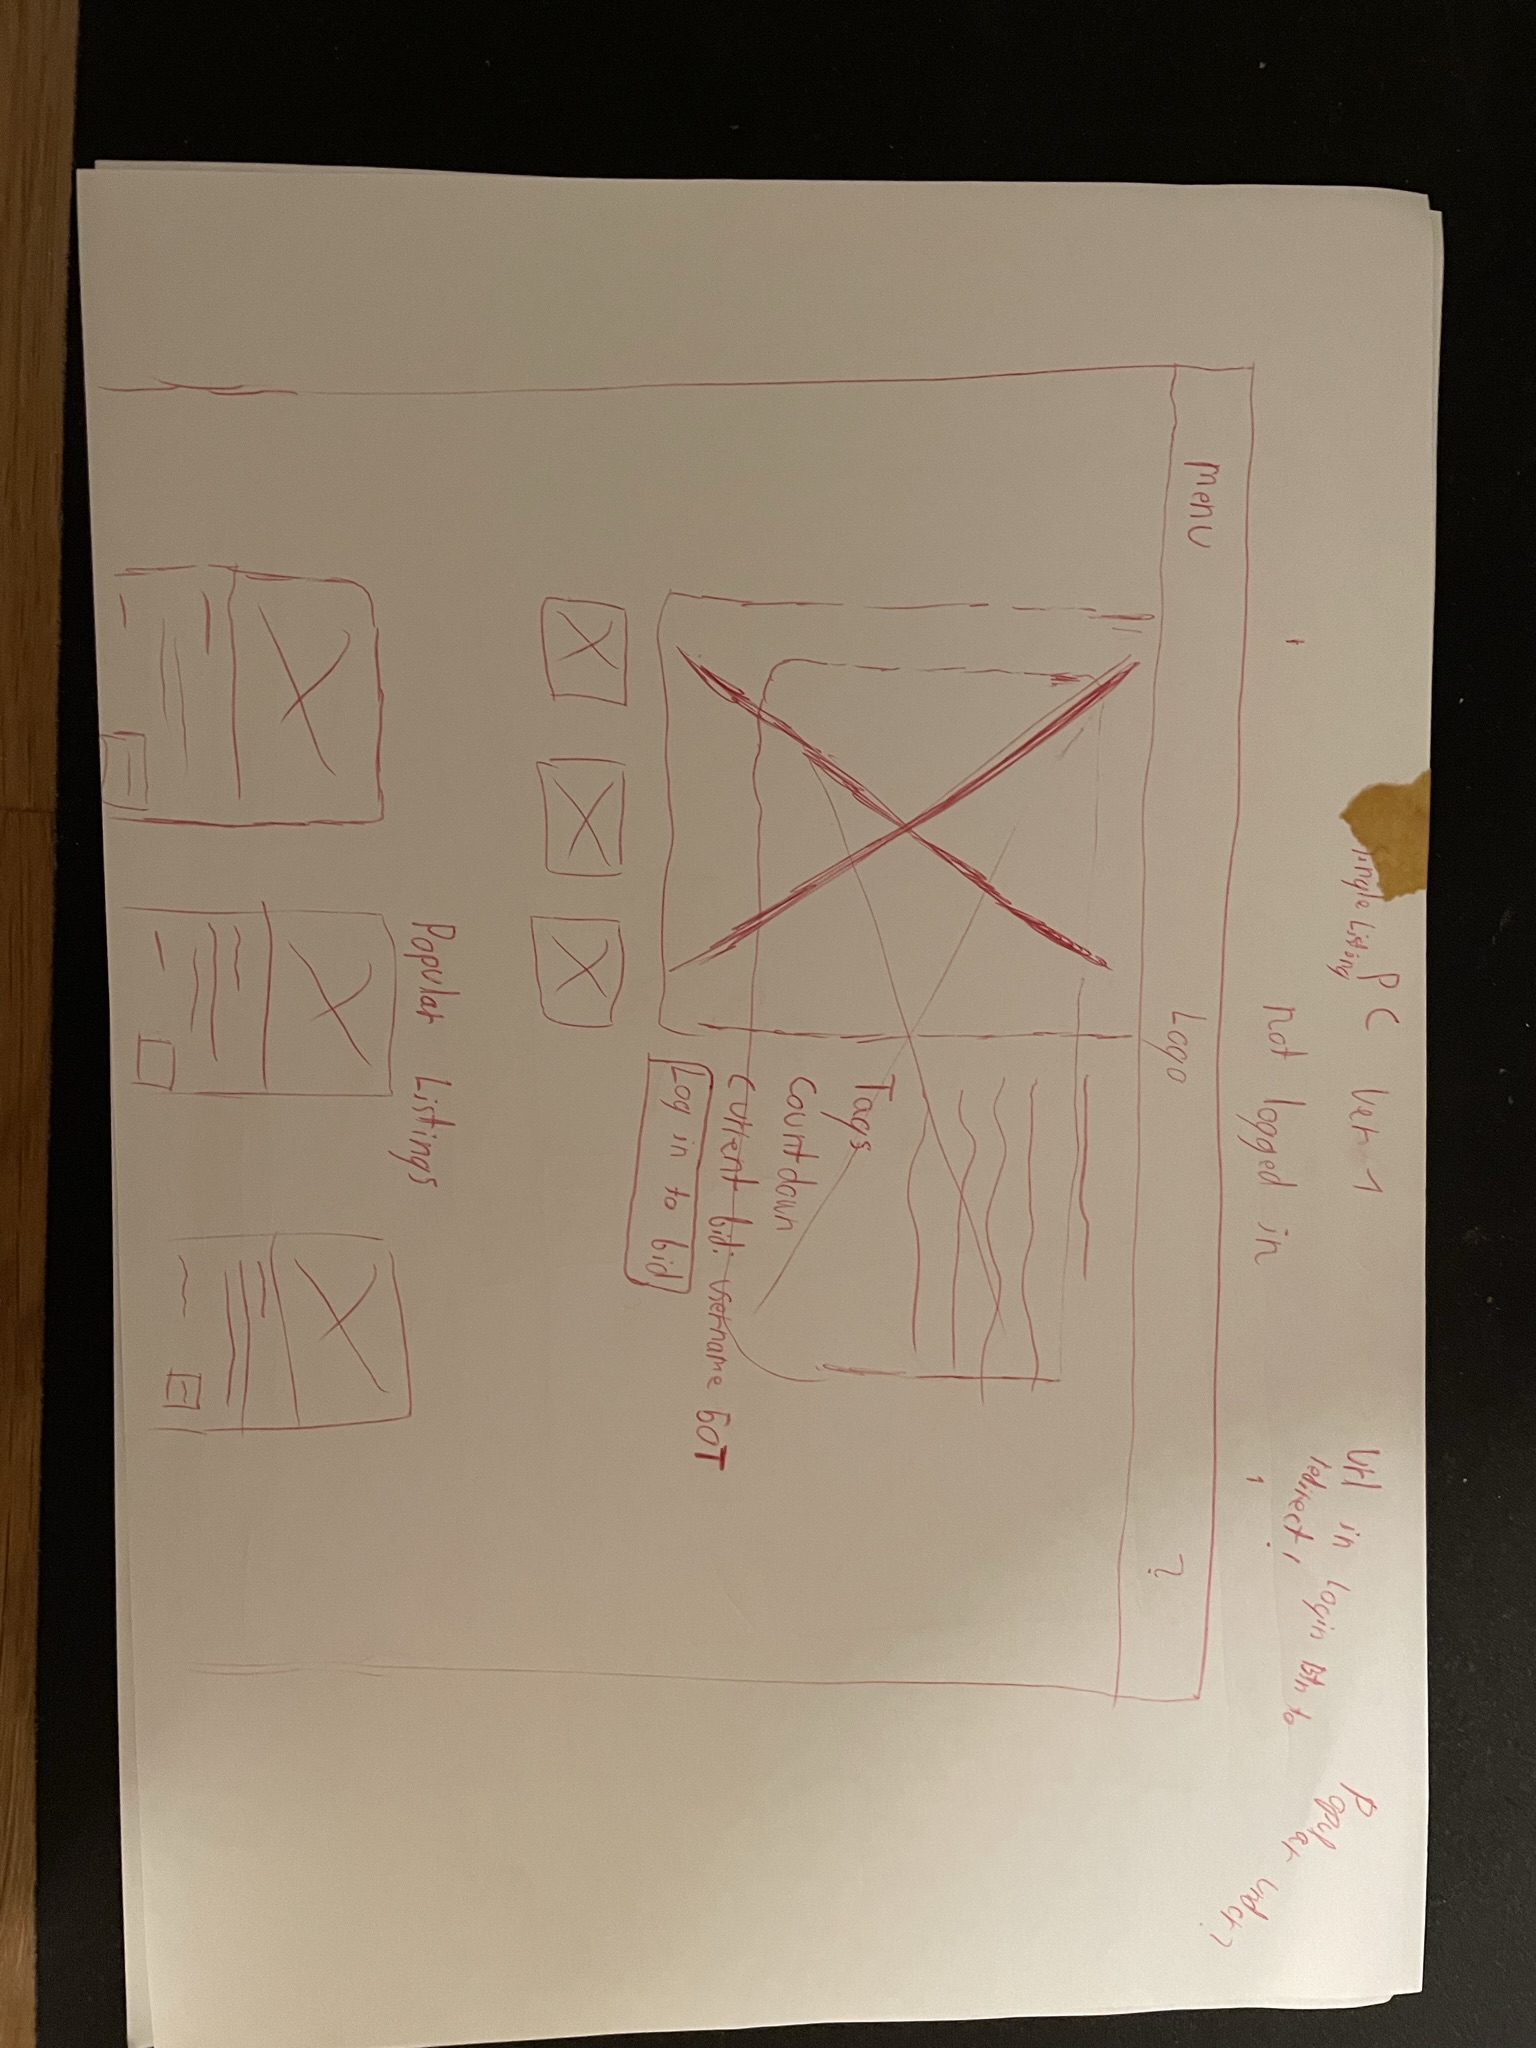 Single Listing
PC Ver 1
not logged in
Url in Login Btn to
redirect,
Popular under?
menu
Logo
?
Tags
Countdown
Current bid: username 60T
Log in to bid
Popular Listings